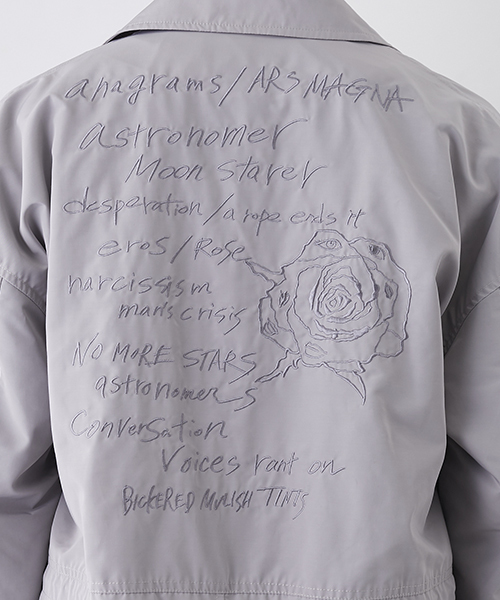 anagrams / ARS MAGNA
astronomer
Moon starer
desperation / a rope ends it
eros / Rose
narcissism
man's crisis
NO MORE STARS
astronomers
Conversation
Voices rant on
BICKERED MULISH TINTS